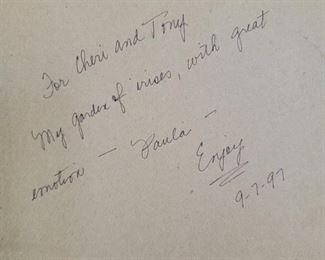 For Cheri and Tony
My garden of irises, with great
emotion — Paula —
Enjoy
9-7-97